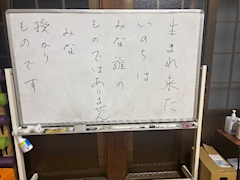 生まれ来た
いのちは
みな誰の
ものではありません
みな
授かり
ものです